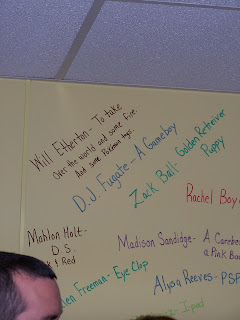 Will Etherton - To take
Over the world and some fire.
And some Pokemon toys.
D.J. Fugate - A Gameboy
Zack Ball - Golden Retreiver
Puppy
Rachel Boy
Mahlon Holt -
D.S.
Red
Madison Sandidge - A
a Pink
Freeman - Eye Clap
Alysa Reeves - PSP
Ipod